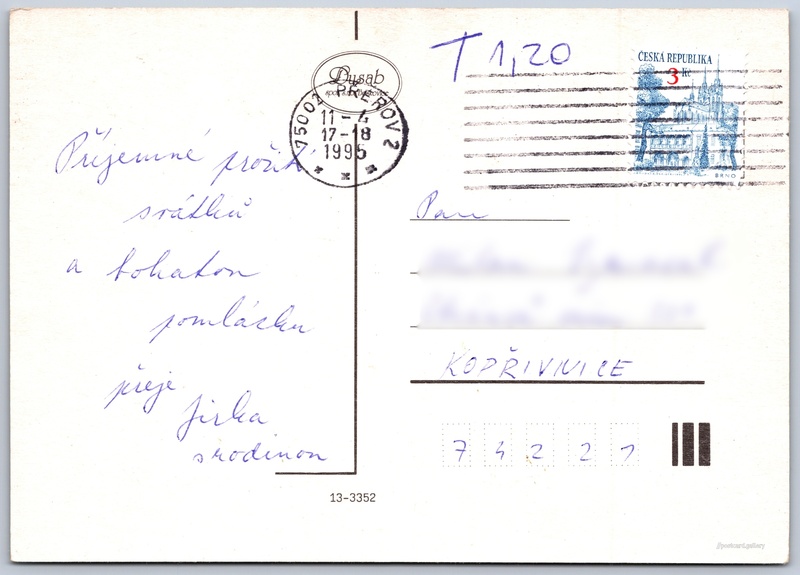 T 1,20
ČESKÁ REPUBLIKA
3 Kč
BRNO
Dusab
75002 PŘEROV 2
11-4
17-18
1995
Příjemné prožití
svátků
a bohatou
pomlázku
přeje
Jirka
s rodinou
Pan
KOPŘIVNICE
7 4 2 2 1
13-3352